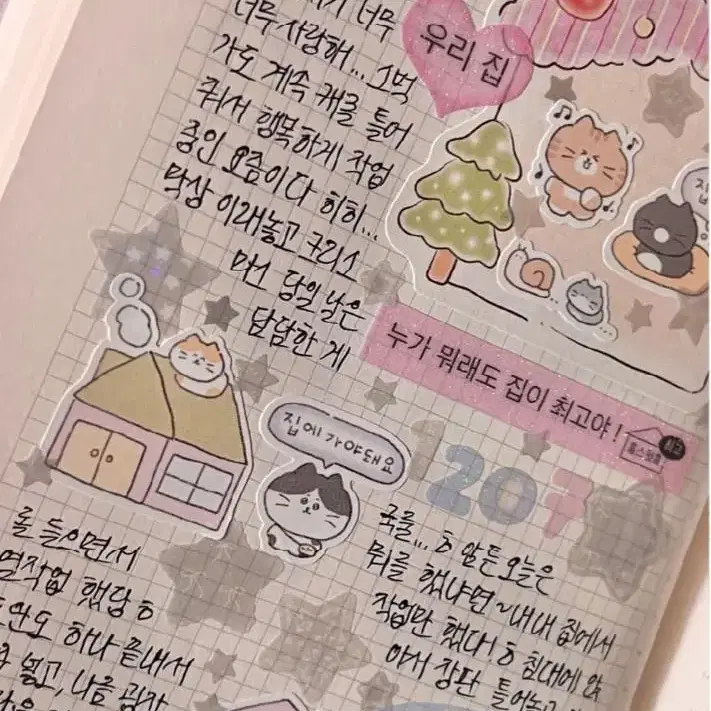 너무
너무 사랑해... 그벅
가도 계속 캐롤 틀어
줘서 행복하게 작업
중인 요즘이다 히히...
막상 이래놓고 크리스
마스 당일 날은
담담한 게
우리 집
누가 뭐래도 집이 최고야!
홈스윗홈
집에 가야돼요
1207
를 들으면서
열작업 했당ㅎ
안도 하나 끝내서
넣고, 나름
국룰...ㅎ 암튼 오늘은
뭐를 했냐면~내내 집에서
작업만 했다!ㅎ 침대에 앉
아서 장단 틀어놓고